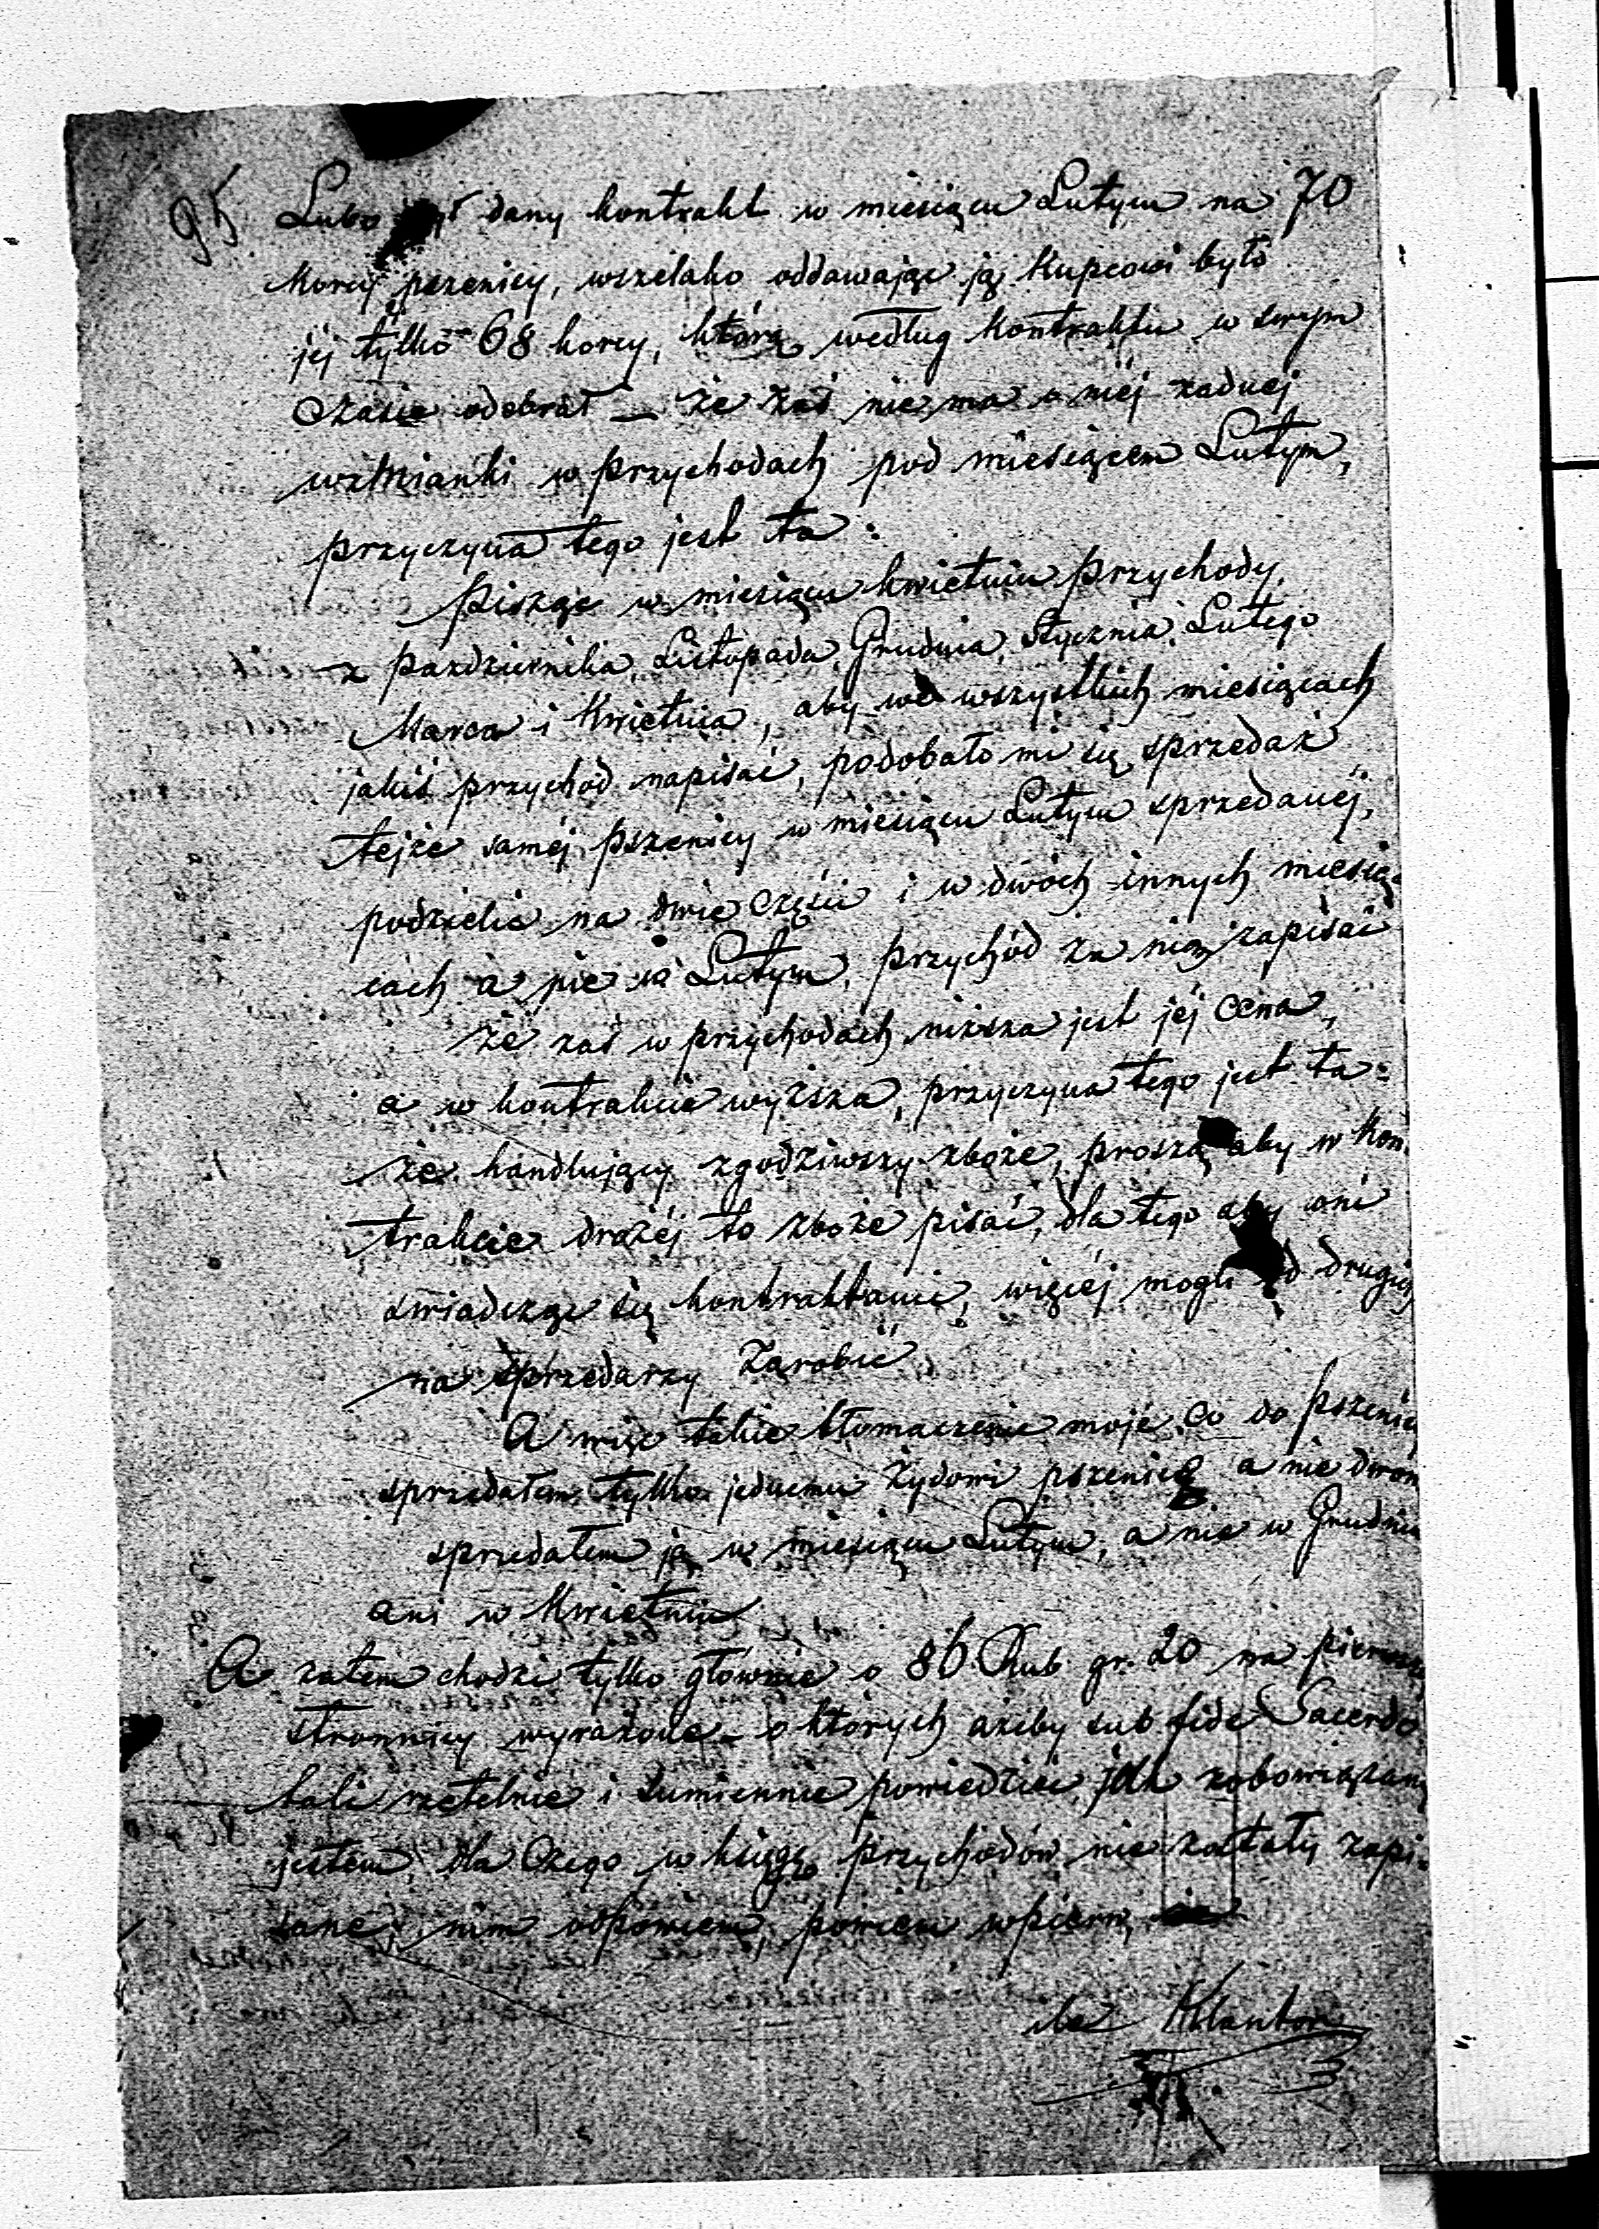 95 Lubo był dany kontrakt w miesiącu Lutym na 70
korcy pszenicy, wszelako oddawając ją Kupcowi było
jéj tylko 68 korcy, którą według Kontraktu w swym
czasie odebrał — że zaś nie ma o niéj żadnej
wzmianki w przychodach pod miesiącem Lutym,
przyczyna tego jest ta:
Pisząc w miesiącu Kwietniu przychody
z Października, Listopada, Grudnia, Stycznia, Lutego
Marca i Kwietnia, aby we wszystkich miesiącach
jakiś przychód napisać, podobało mi się sprzedaż
tejże saméj pszenicy w miesiącu Lutym sprzedanéj,
podzielić na dwie części i w dwóch innych miesią
cach a nie w Lutym, przychód za nią zapisać
że zaś w przychodach niższa jest jéj cena,
a w kontrakcie wyższa, przyczyna tego jest ta:
że handlujący zgodziwszy zboże, proszą aby w Kon-
trakcie drożéj to zboże pisać, dla tego aby oni
świadcząc się kontraktami, więcéj mogli od drugich
na sprzedarzy Zarobić
A więc takie tłomaczenie moje co do pszenicy
sprzedałem tylko jednemu Żydowi pszenicę a nie dwom
sprzedałem ją w miesiącu Lutym, a nie w Grudniu
ani w Kwietniu
A zatem chodzi tylko głównie o 86 Rub. gr. 20 na pierwszej
stronnicy wyrażone — o których ażeby sub fide Sacerdo
tali rzetelnie i sumiennie powiedzieć, jak zobowiązany
jestem, dla czego w księgę przychodów nie zostały zapi-
sane, nim odpowiem, powiem wpierw,